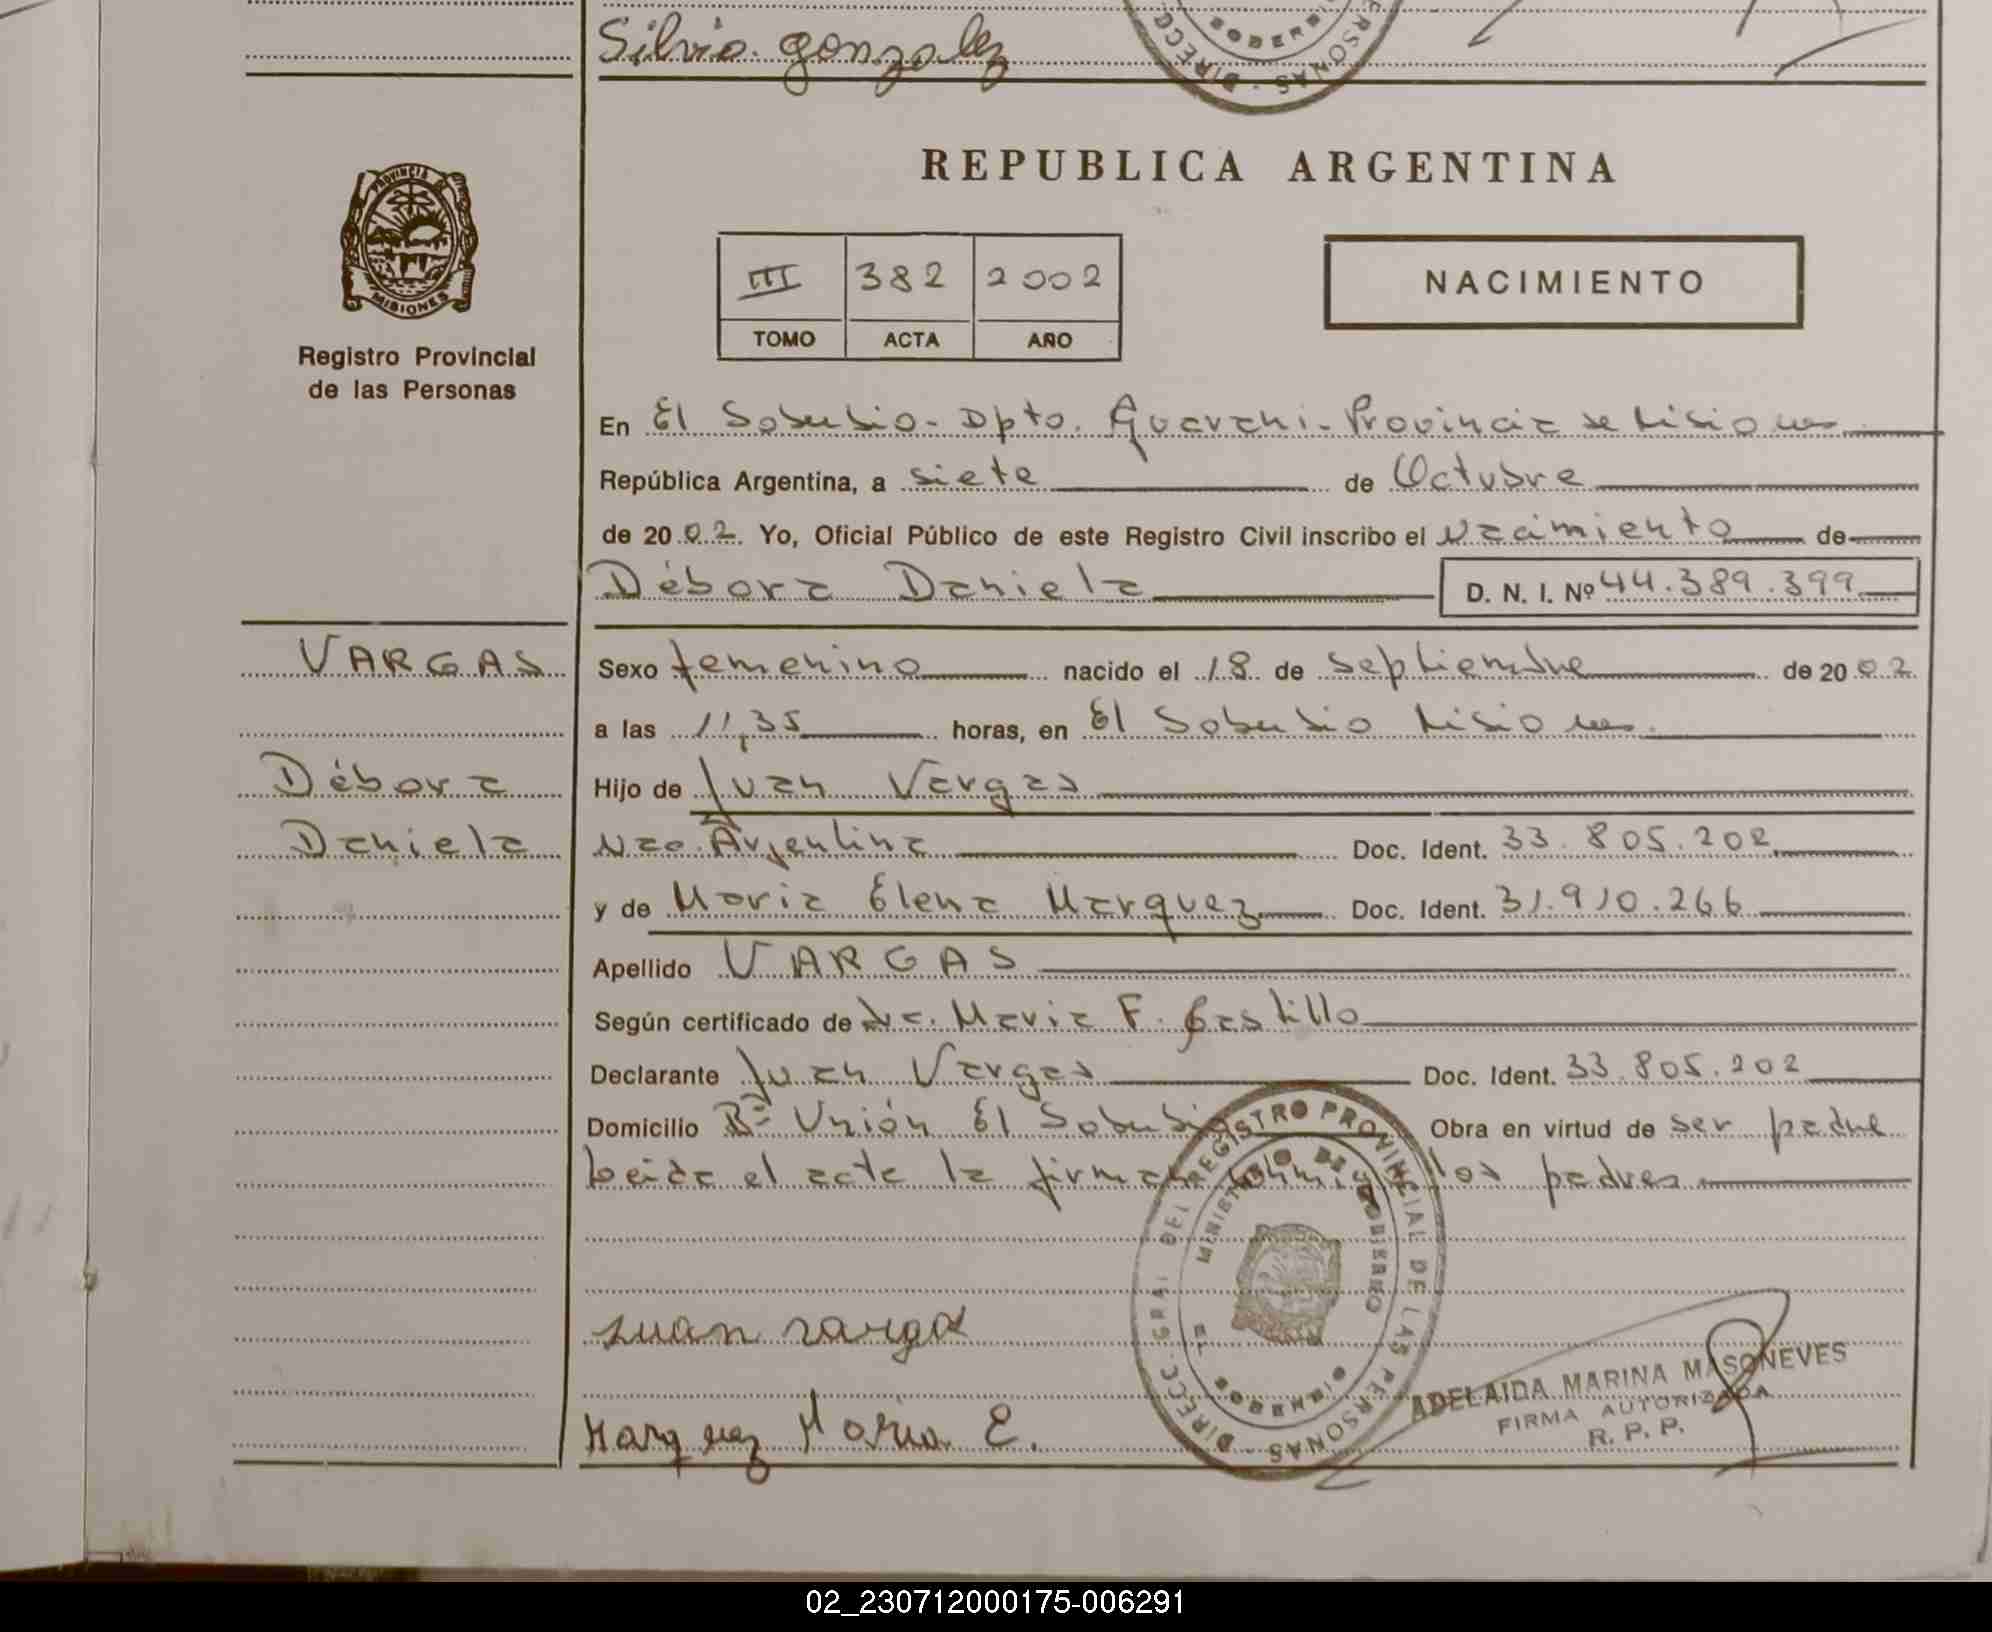 Silvio gonzalez
DIRECC
PERSONAS
REPUBLICA ARGENTINA
PROVINCIA DE
MISIONES
III 382 2002
TOMO ACTA AÑO
NACIMIENTO
Registro Provincial
de las Personas
En El Soberbio - Dpto. Guarani - Provincia de Misiones
República Argentina, a siete de Octubre
de 2002. Yo, Oficial Público de este Registro Civil inscribo el nacimiento de
Débora Daniela D. N. I. Nº 44.389.399
VARGAS
Sexo femenino nacido el 18 de septiembre de 2002
a las 11,35 horas, en El Soberbio Misiones.
Débora
Hijo de Juan Vargas
Daniela
Nac. Argentina Doc. Ident. 33.805.202
y de Maria Elena Marquez Doc. Ident. 31.910.266
Apellido VARGAS
Según certificado de Dra. Maria F. Castillo
Declarante Juan Vargas Doc. Ident. 33.805.202
Domicilio Bº Unión El Soberbio Obra en virtud de ser padre
Leida el acta la firman conmigo los padres
DIRECC. GRAL DEL REGISTRO PROVINCIAL DE LAS PERSONAS
MINISTERIO DE GOBIERNO
EL SOBERBIO
Juan vargas
ADELAIDA MARINA MASONEVES
FIRMA AUTORIZADA
R. P. P.
Marquez Maria E.
02_230712000175-006291